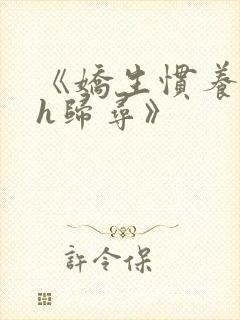 《嬌生慣養
h歸尋》
許令保